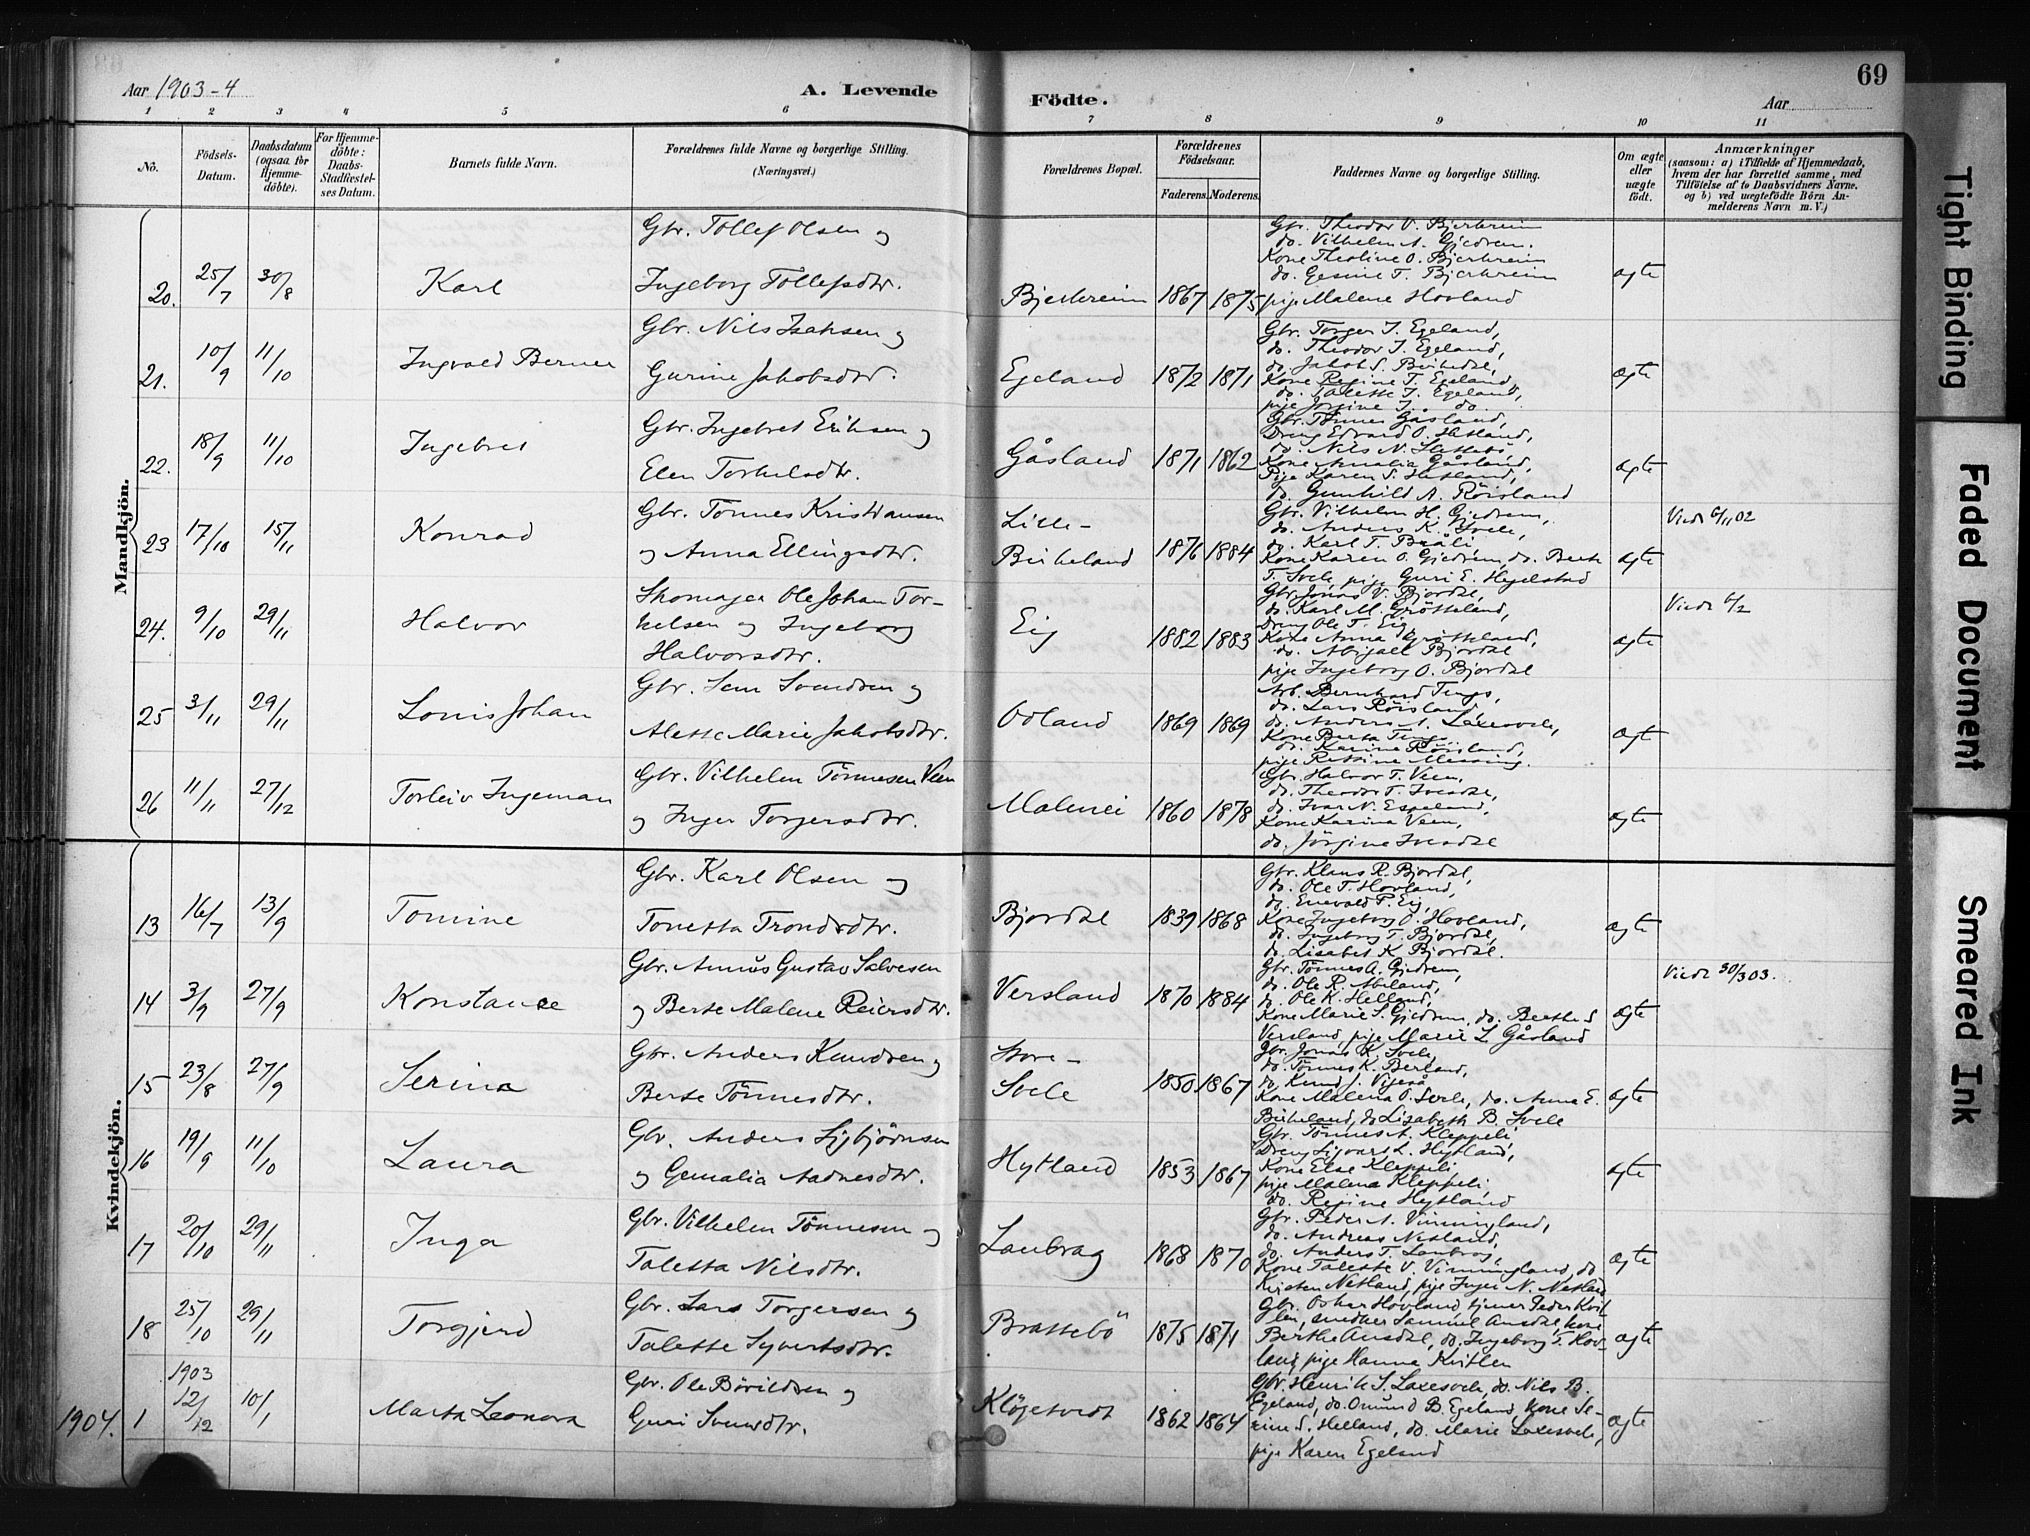 69
Aar 1903-4
A. Levende
Födte.
Aar
1 2 3 4 5 6 7 8 9 10 11
No.
Födsels-Datum.
Daabsdatum (ogsaa for Hjemmedöbte).
For Hjemmedöbte: Daabs-Stadfæstelses Datum.
Barnets fulde Navn.
Forældrenes fulde Navne og borgerlige Stilling. (Næringsvei.)
Forældrenes Bopæl.
Forældrenes Födselsaar.
Faderens. Moderens.
Faddernes Navne og borgerlige Stilling.
Om ægte eller uægte födt.
Anmærkninger
(saasom: a) i Tilfælde af Hjemmedaab, hvem der har forrettet samme, med Tilföielse af to Daabsvidners Navne. og b) ved uægtefödte Börn Anmelderens Navn m. V.)
Mandkjön.
20. 25/7 30/8 Karl
Gbr. Tollef Olsen og
Ingeborg Tollefsdtr.
Bjerkreim 1867 1875
Gbr. Theodor V. Bjerkreim
do. Vilhelm A. Gjedrem.
Kone Theoline O. Bjerkreim
do. Gesine T. Bjerkreim
pige Malene Hovland
ægte
21. 10/9 11/10 Ingvald Berner
Gbr. Nils Isaksen og
Gurine Jakobsdtr.
Egeland 1872 1871
Gbr. Torger J. Egeland,
do. Theodor J. Egeland,
do. Jakob S.
Kone Regine T. Egeland,
do. Talette J. Egeland,
pige Jorgine J. do.
ægte
22. 18/9 11/10 Ingebret
Gbr. Ingebret Eriksen og
Elen Torkelsdtr.
Gåsland 1871 1862
Gbr. Tönnes Gåsland,
Dreng Edvard O. Hetland,
do. Nils N.
Kone Amalia Gåsland,
Pige Karen S. Hetland,
do. Gunhild A. Röisland
ægte
23 17/10 15/11 Konrad
Gbr. Tönnes Kristiansen
og Anna Ellingsdtr.
Lille-
Birkeland 1876 1884
Gbr. Vilhelm H. Gjedrem,
do. Anders K. Svele,
do. Karl T. Bråli
Kone Karen O. Gjedrem, do. Berte
T. Svele, pige Guri E. Hegelstad
ægte
Viede 6/11 02
24. 9/10 29/11 Halvor
Skomager Ole Johan Tor-
kelsen og Ingeborg
Halvorsdtr.
Eig 1882 1883
Gbr. Jonas V. Bjordal,
do. Karl M. Grötteland,
Dreng Ole T. Eig,
Kone Anna Grötteland,
do. Abigael Bjordal
pige Ingeborg O. Bjordal
ægte
Viede 6/2
25 3/11 29/11 Louis Johan
Gbr. Sem Svendsen og
Alette Marie Jakobsdtr.
Odland 1869 1869
Arb. Bernhard Tengs,
do. Lars Röisland
do. Anders A. Laxesvele,
Kone Berta Tengs
do. Karine Röisland,
pige
ægt
26 11/11 27/12 Torleiv Ingeman
Gbr. Vilhelm Tönnesen Veen
og Inger Torgersdtr.
Malmei 1860 1878
Gbr. Halvor T. Veen,
do. Theodor T. Ivesdal,
do. Ivar N. Espeland,
Kone Karina Veen,
do. Jörgine Ivesdal
ægte
Kvindekjön.
13 16/7 13/9 Tomine
Gbr. Karl Olsen og
Tonetta Trondsdtr.
Bjordal 1839 1868
Gbr. Klaus R. Bjordal,
do. Ole T. Hovland,
do. Enevald P. Eig,
Kone Ingeborg O. Hovland,
do. Ingeborg T. Bjordal,
do. Lisabet K. Bjordal.
ægte
14 3/9 27/9 Konstance
Gbr. Gustav Salvesen
og Berte Malene Reiersdtr.
Versland 1870 1884
Gbr. Tönnes A. Gjedrem,
do. Ole R.
do. Ole K. Helland,
Kone Marie S. Gjedrem, do. Berthe S
Versland, pige Marie L Gåsland
ægte
Viede 30/3 03.
15 23/8 27/9 Serina
Gbr. Anders Knudsen og
Berte Tönnesdtr.
Store-
Svele 1850 1867
Gbr. Jonas K. Svele,
do. Tönnes K. Berland,
do. Knud J. Vigeså
Kone Malena O. Svele, do. Anna E.
Birkeland, do Lisabeth B. Svele
ægte
16 19/9 11/10 Laura
Gbr. Anders Sigbjörnsen
og Gemalia Aadnesdtr.
Hytland 1853 1867
Gbr. Tönnes A. Kleppeli,
Dreng Sigvart L. Hytland,
Kone Else Kleppeli,
pige Malena Kleppeli
do. Regine Hytland
ægte
17 20/10 29/11 Inga
Gbr. Vilhelm Tönnesen og
Taletta Nilsdtr.
Laubrag 1868 1870
Gbr. Peder A. Vinningland,
do. Andreas Netland,
do. Anders T. Laubrag,
Kone Talette V. Vinningland, do
Kirsten Netland, pige Inger N. Netland
ægte
18 25/10 29/11 Torgjerd
Gbr. Lars Torgersen og
Talette Syvertsdtr.
Brattebö 1875 1871
Gbr. Oskar Hovland tjener Peder Kvit-
len, snedker Samuel Ausdal, kone
Berthe Ausdal, do. Ingeborg T. Hov-
land, pige Hanna Kvitlen
ægte
1904. 1 1903 12/12 10/1 Marta Leonora
Gbr. Ole Bårildsen og
Guri Svendsdtr.
Klögetvedt 1862 1864
Gbr. Henrik S. Laxesvele, do. Nils B.
Egeland, do. Omund B. Egeland Kone Se-
rine S. Helland, do. Marie Laxesvele,
pige Karen Egeland
ægte
Tight Binding
Faded Document
Smeared Ink